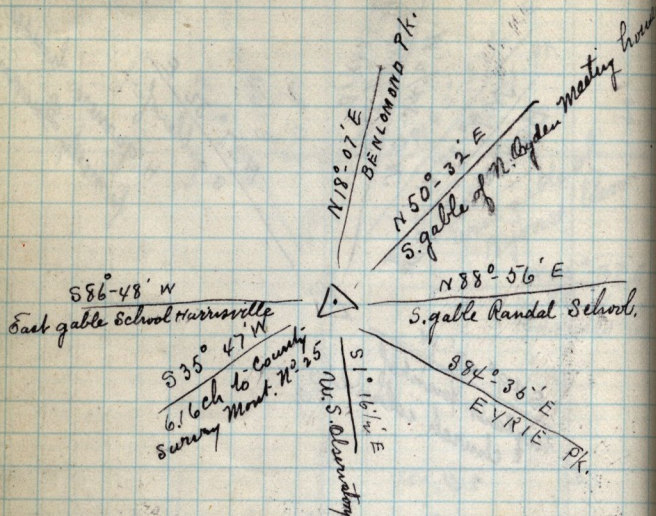 N18°-07' E
BENLOMOND PK.
N 50°-32' E
S. gable of N. Ogden Meeting hous
N88°-56' E
S. gable Randal School.
S84°-36' E
EYRIE PK.
S 1° 16 1/2' E
U.S. Observatory
S35° 47' W
6.16 ch to County
Survey Mont. Nº 25
S86°-48' W
East gable School Harrisville